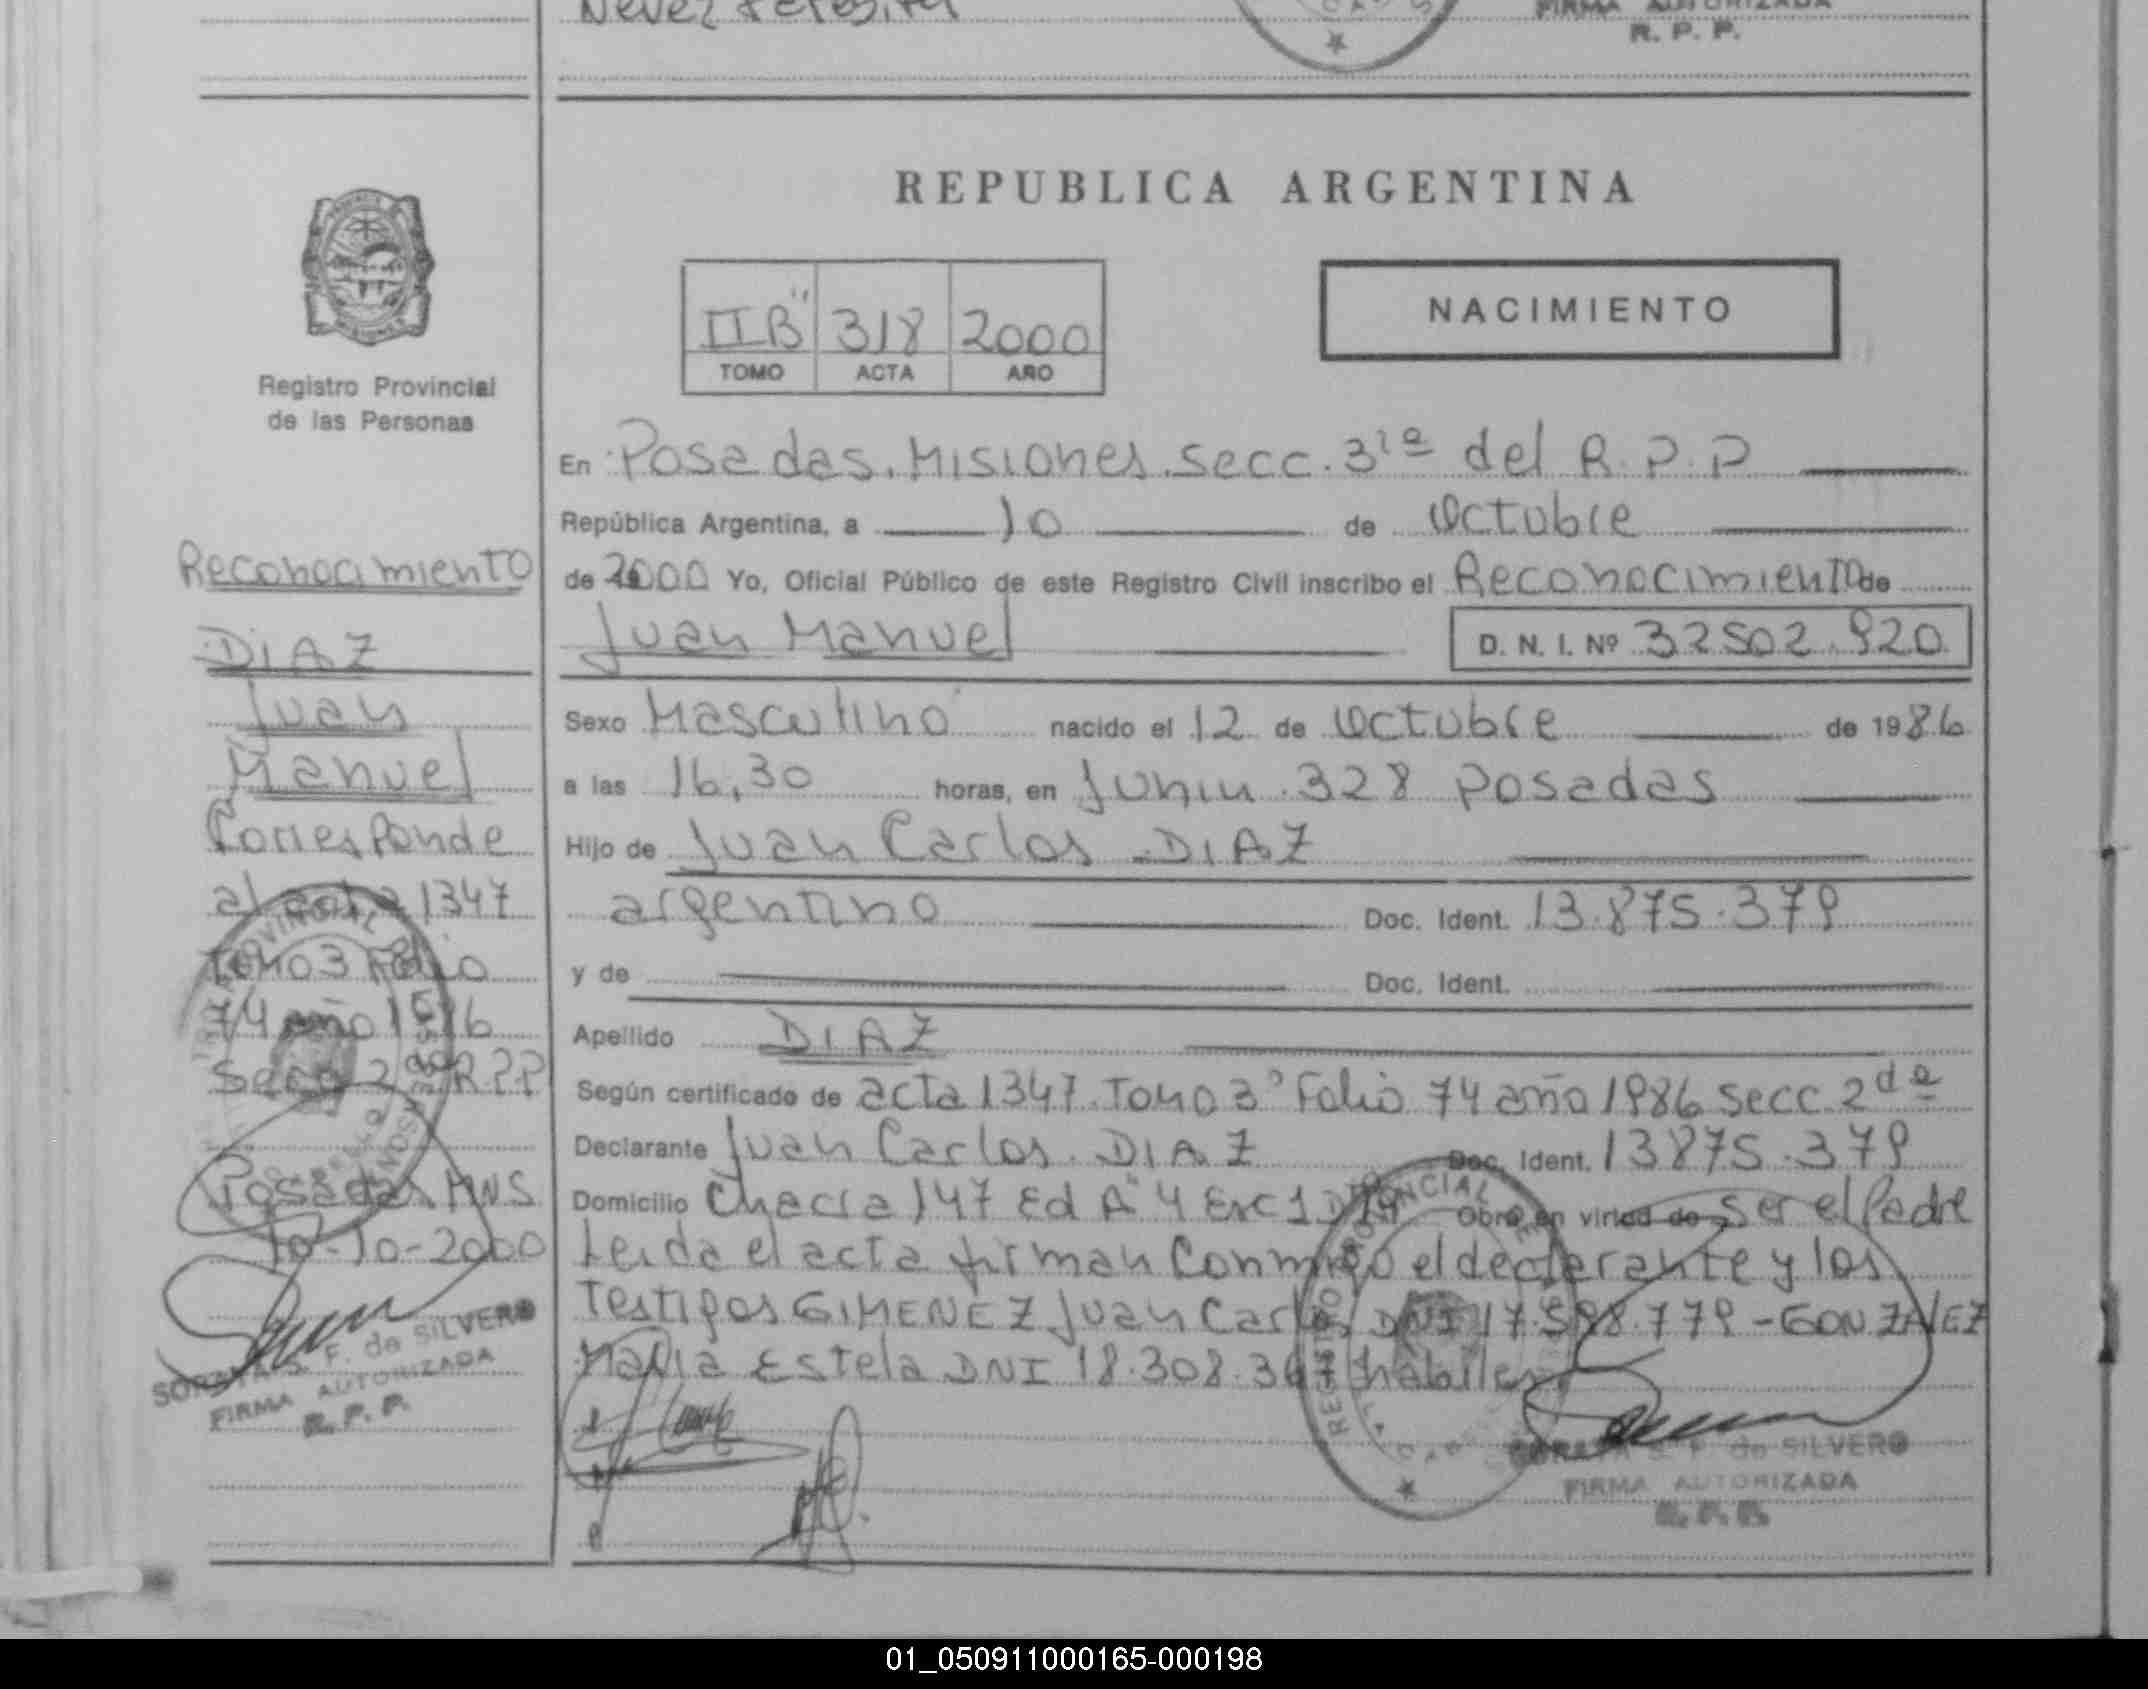 FIRMA AUTORIZADA
R. P. P.
REPUBLICA ARGENTINA
Registro Provincial
de las Personas
IIB" 318 2000
TOMO ACTA AÑO
NACIMIENTO
Reconocimiento
DIAZ
Juan
Manuel
Corresponde
al acta 1347
Tomo 3 Folio
74 año 1986
Secc 2da R.P.P
Posadas. Mns
10-10-2000
SORAYA S. F. de SILVERO
FIRMA AUTORIZADA
R. P. P.
En Posadas. Misiones. secc. 3ra del R.P.P
República Argentina, a 10 de Octubre
de 2000 Yo, Oficial Público de este Registro Civil inscribo el Reconocimiento de
Juan Manuel D. N. I. Nº 32502.920
Sexo Masculino nacido el 12 de Octubre de 1986
a las 16,30 horas, en Junin 328 Posadas
Hijo de Juan Carlos DIAZ
argentino Doc. Ident. 13.875.379
y de Doc. Ident.
Apellido DIAZ
Según certificado de acta 1347. Tomo 3º Folio 74 año 1986 secc. 2da
Declarante Juan Carlos. DIAZ Doc. Ident. 13875.379
Domicilio Chacra 147 Ed A" 4 Esc 1 Obra en virtud de ser el Padre
Leida el acta firman Conmigo el declarante y los
Testigos GIMENEZ Juan Carlos DNI 17.598.779 - GONZALEZ
Maria Estela DNI 18.308.367 habiles
SORAYA S. F. de SILVERO
FIRMA AUTORIZADA
R. P. P.
01_050911000165-000198